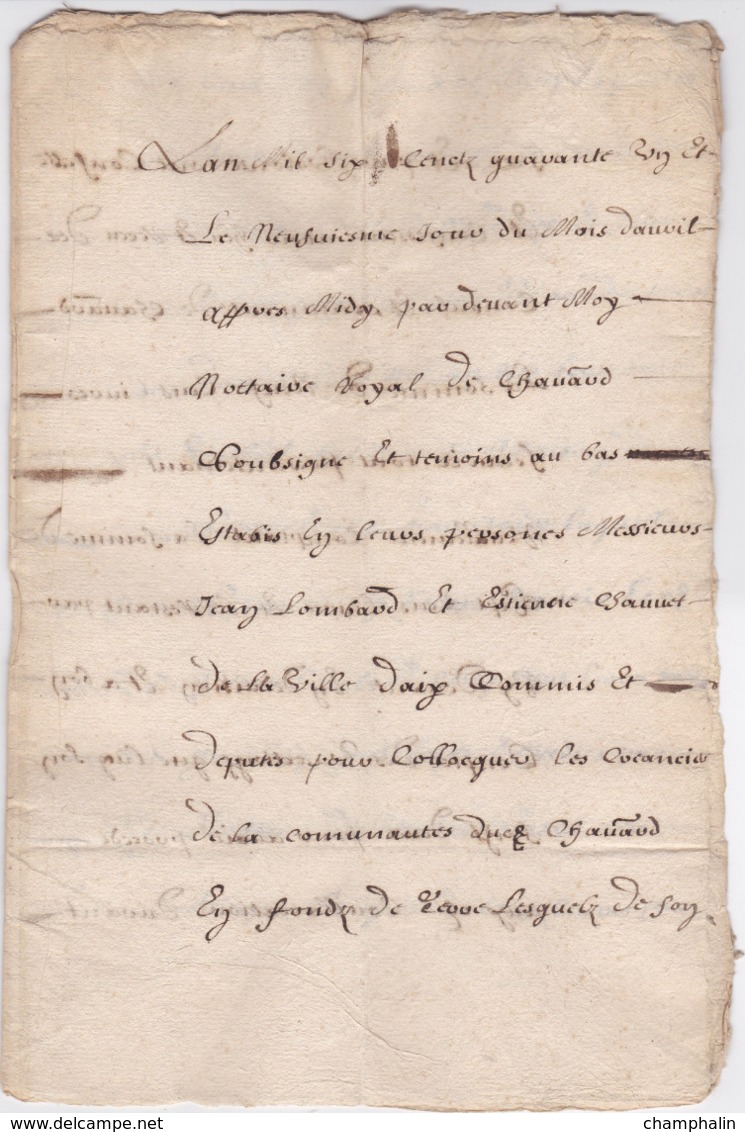 Lan Mil six Centz quarante Un Et
Le Neufuiesme Jour du Mois dauril
appres Midy par deuant Moy
Nottaire Royal de Chauard
Soubsigne Et temoins au bas
Estabis En leurs persones Messieurs
Jean Lombard Et Estienne Chauuet
de la Ville daix Commis Et
deputes pour Collocquer les Creancies
de la Communautes dud Chauard
En fondz de Terre Lesquelz de son
delcampe.net
champhalin